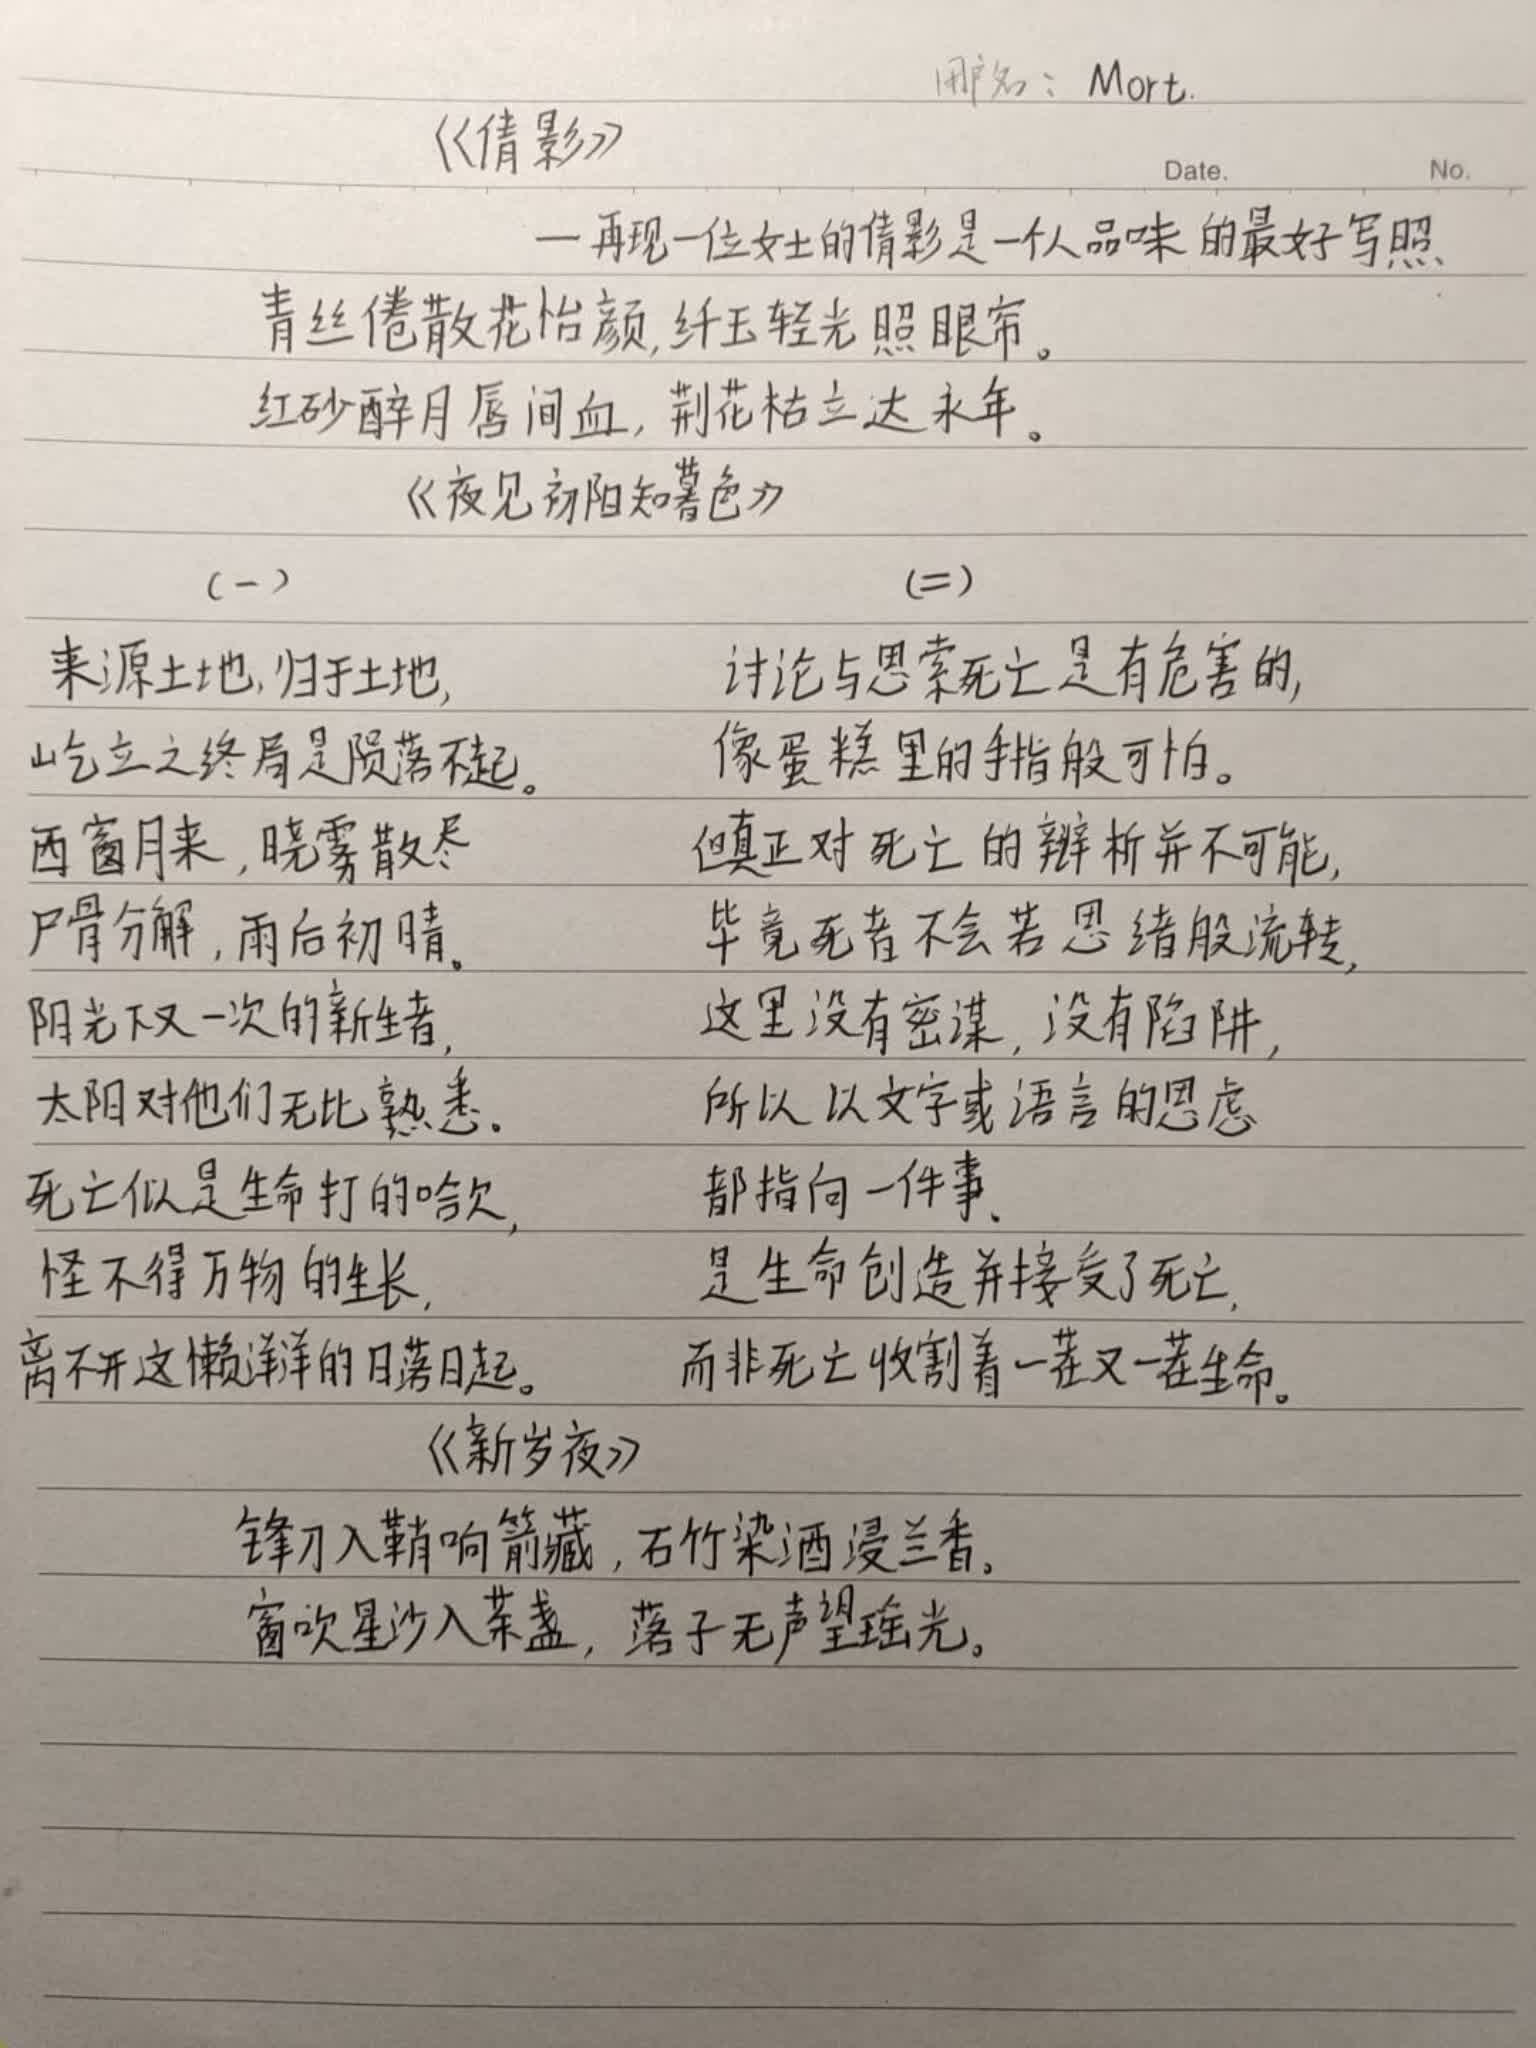 用户名：Mort.
《倩影》
Date. No.
—再现一位女士的倩影是一个人品味的最好写照
青丝倦散花怡颜,纤玉轻光照眼帘。
红砂醉月唇间血,荆花枯立达永年。
《夜见初阳知暮色》
(一)
来源土地,归于土地,
屹立之终局是陨落不起。
西窗月来,晓雾散尽
尸骨分解,雨后初晴。
阳光下又一次的新生者,
太阳对他们无比熟悉。
死亡似是生命打的哈欠,
怪不得万物的生长,
离不开这懒洋洋的日落日起。
(二)
讨论与思索死亡是有危害的,
像蛋糕里的手指般可怕。
但真正对死亡的辩析并不可能,
毕竟死者不会若思绪般流转,
这里没有密谋,没有陷阱,
所以以文字或语言的思虑
都指向一件事、
是生命创造并接受了死亡,
而非死亡收割着一茬又一茬生命。
《新岁夜》
锋刃入鞘响箭藏,石竹染酒浸兰香。
窗吹星沙入茶盏,落子无声望瑶光。